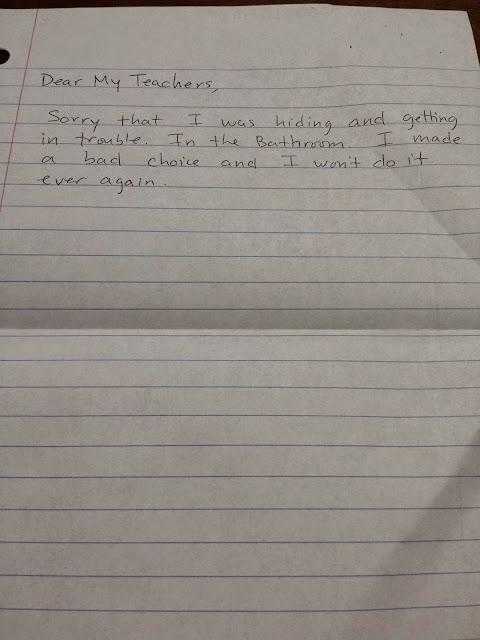 Dear My Teachers,
Sorry that I was hiding and getting
in trouble. In the Bathroom I made
a bad choice and I won't do it
ever again.